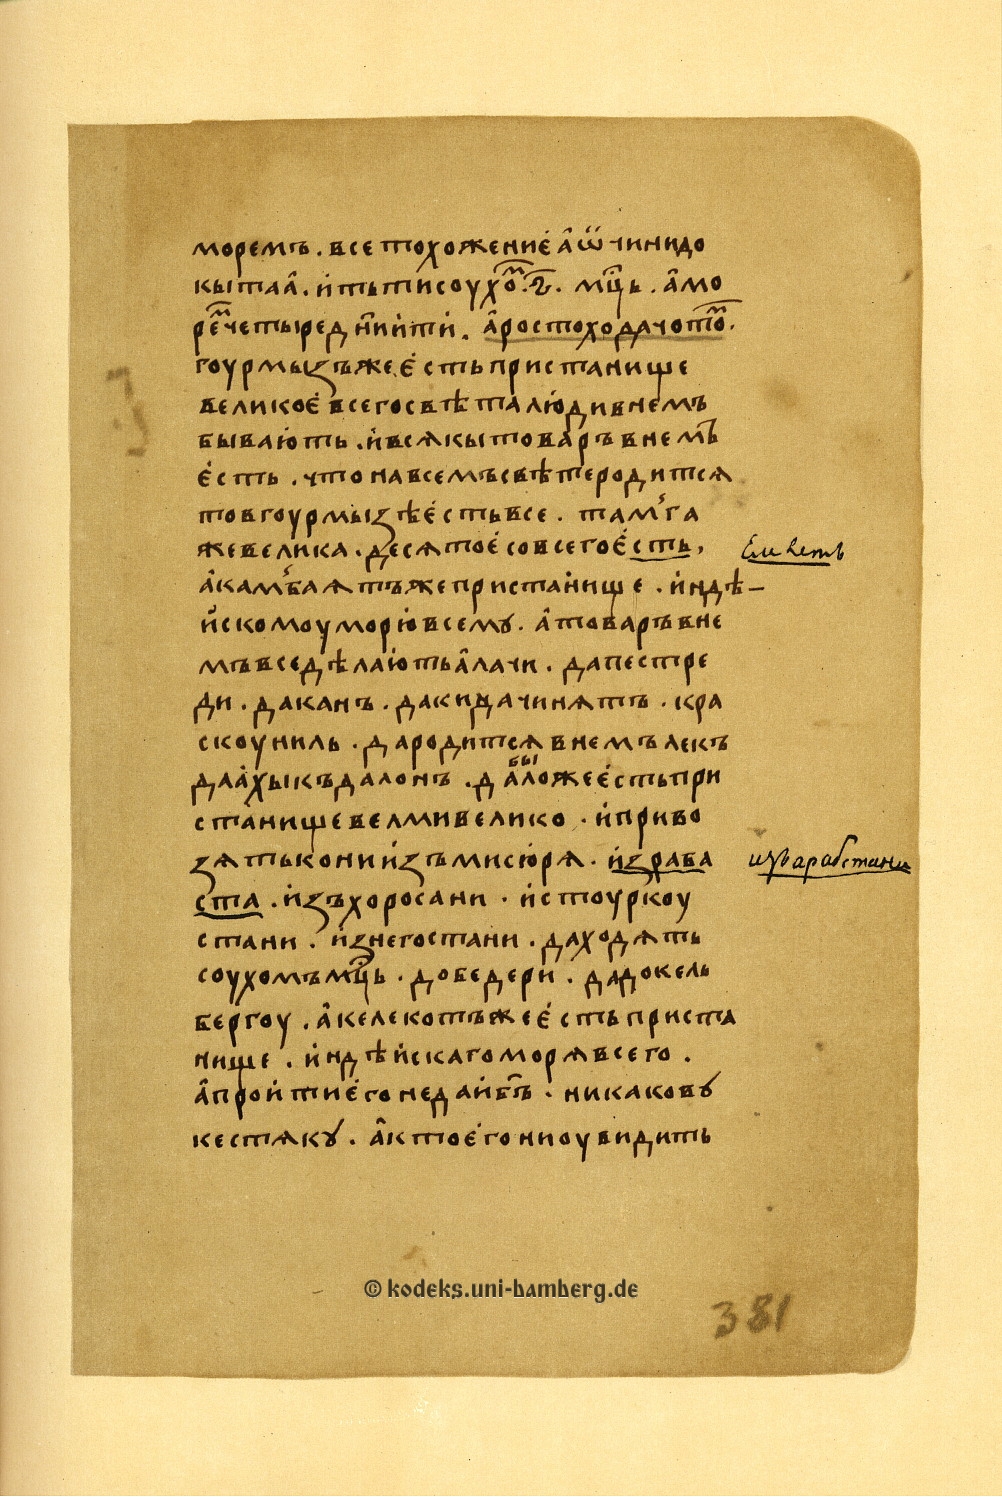 моремъ . все то хожение а ѿ чини до
кытаа . ити сꙋхо҃м .ѕ҃. мц҃ь . а мо
ре҃м четыре дн҃и ити . аросто хода чото҃м .
гоурмызъ же есть пристанище
великое всего свѣта люди в немъ
бывають . и всякы товаръ в немъ
есть . что на всемъ свѣте родится
то в гоурмызѣ есть все . тамга
же велика . десятое со всего есть , Ем. кеть
а камбаятъ же пристанище . индѣ–
искомоу морю всему . а товаръ в не
мъ все дѣлають алачи . да пестре
ди . да канъ . да киндачинятъ . кра
скоу ниль . да родится в немъ лекъ
да ахыкъ да лонъ . дабыло же есть при
станище велми велико . и приво
зять кони изъ мисюря . из раба
ста . изъ хоросани . ис тоуркоу изъ арабстани
стани . из негостани . да ходять
соухомъ мц҃ь . до бедери . да до кель
бергоу . а келекотъ же есть приста
нище . индѣискаго моря всего .
а проити его не даи б҃ъ . никакову
кестяку . а кто его ни оувидить
© kodeks.uni-bamberg.de
381